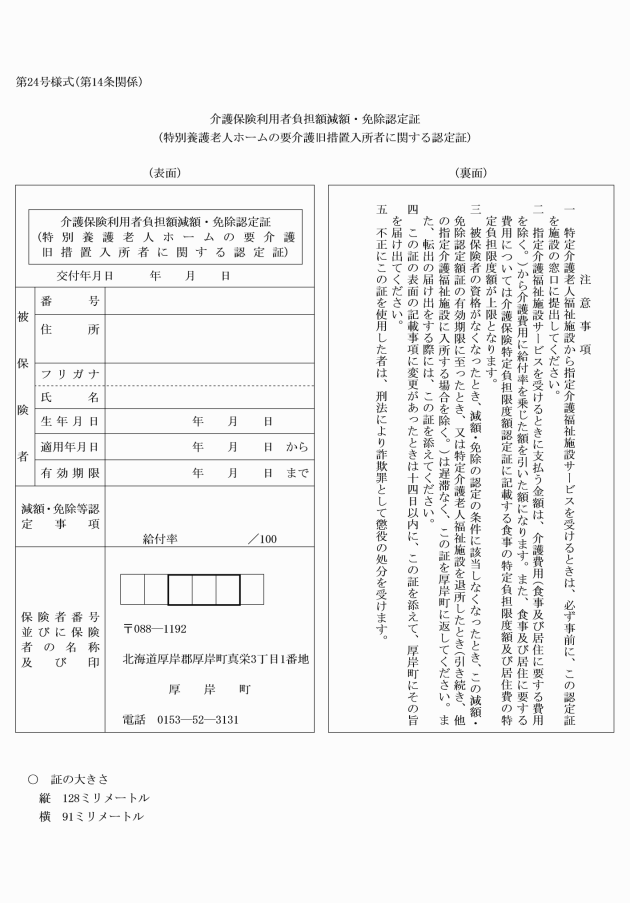 第24号様式(第14条関係)
介護保険利用者負担額減額・免除認定証
(特別養護老人ホームの要介護旧措置入所者に関する認定証)
(表面)
介護保険利用者負担額減額・免除認定証
(特別養護老人ホームの要介護
旧措置入所者に関する認定証)
交付年月日　　年　　月　　日
被保険者
番号
住所
フリガナ
氏名
生年月日　　年　　月　　日
適用年月日　　年　　月　　日　から
有効期限　　年　　月　　日　まで
減額・免除等認
定事項
給付率　　／100
保険者番号
並びに保険
者の名称
及び印
〒088―1192
北海道厚岸郡厚岸町真栄3丁目1番地
厚岸町
電話　0153―52―3131
(裏面)
注意事項
一　特定介護老人福祉施設から指定介護福祉施設サービスを受けるときは、必ず事前に、この認定証
を施設の窓口に提出してください。
二　指定介護福祉施設サービスを受けるときに支払う金額は、介護費用(食事及び居住に要する費用
を除く。)から介護費用に給付率を乗じた額を引いた額になります。また、食事及び居住に要する
費用については介護保険特定負担限度額認定証に記載する食事の特定負担限度額及び居住費の特
定負担限度額が上限となります。
三　被保険者の資格がなくなったとき、減額・免除の認定の条件に該当しなくなったとき、この減額・
免除認定額証の有効期限に至ったとき、又は特定介護老人福祉施設を退所したとき(引き続き、他
の指定介護福祉施設に入所する場合を除く。)は遅滞なく、この証を厚岸町に返してください。ま
た、転出の届け出をする際には、この証を添えてください。
四　この証の表面の記載事項に変更があったときは十四日以内に、この証を添えて、厚岸町にその旨
を届け出てください。
五　不正にこの証を使用した者は、刑法により詐欺罪として懲役の処分を受けます。
○　証の大きさ
縦　128ミリメートル
横　91ミリメートル